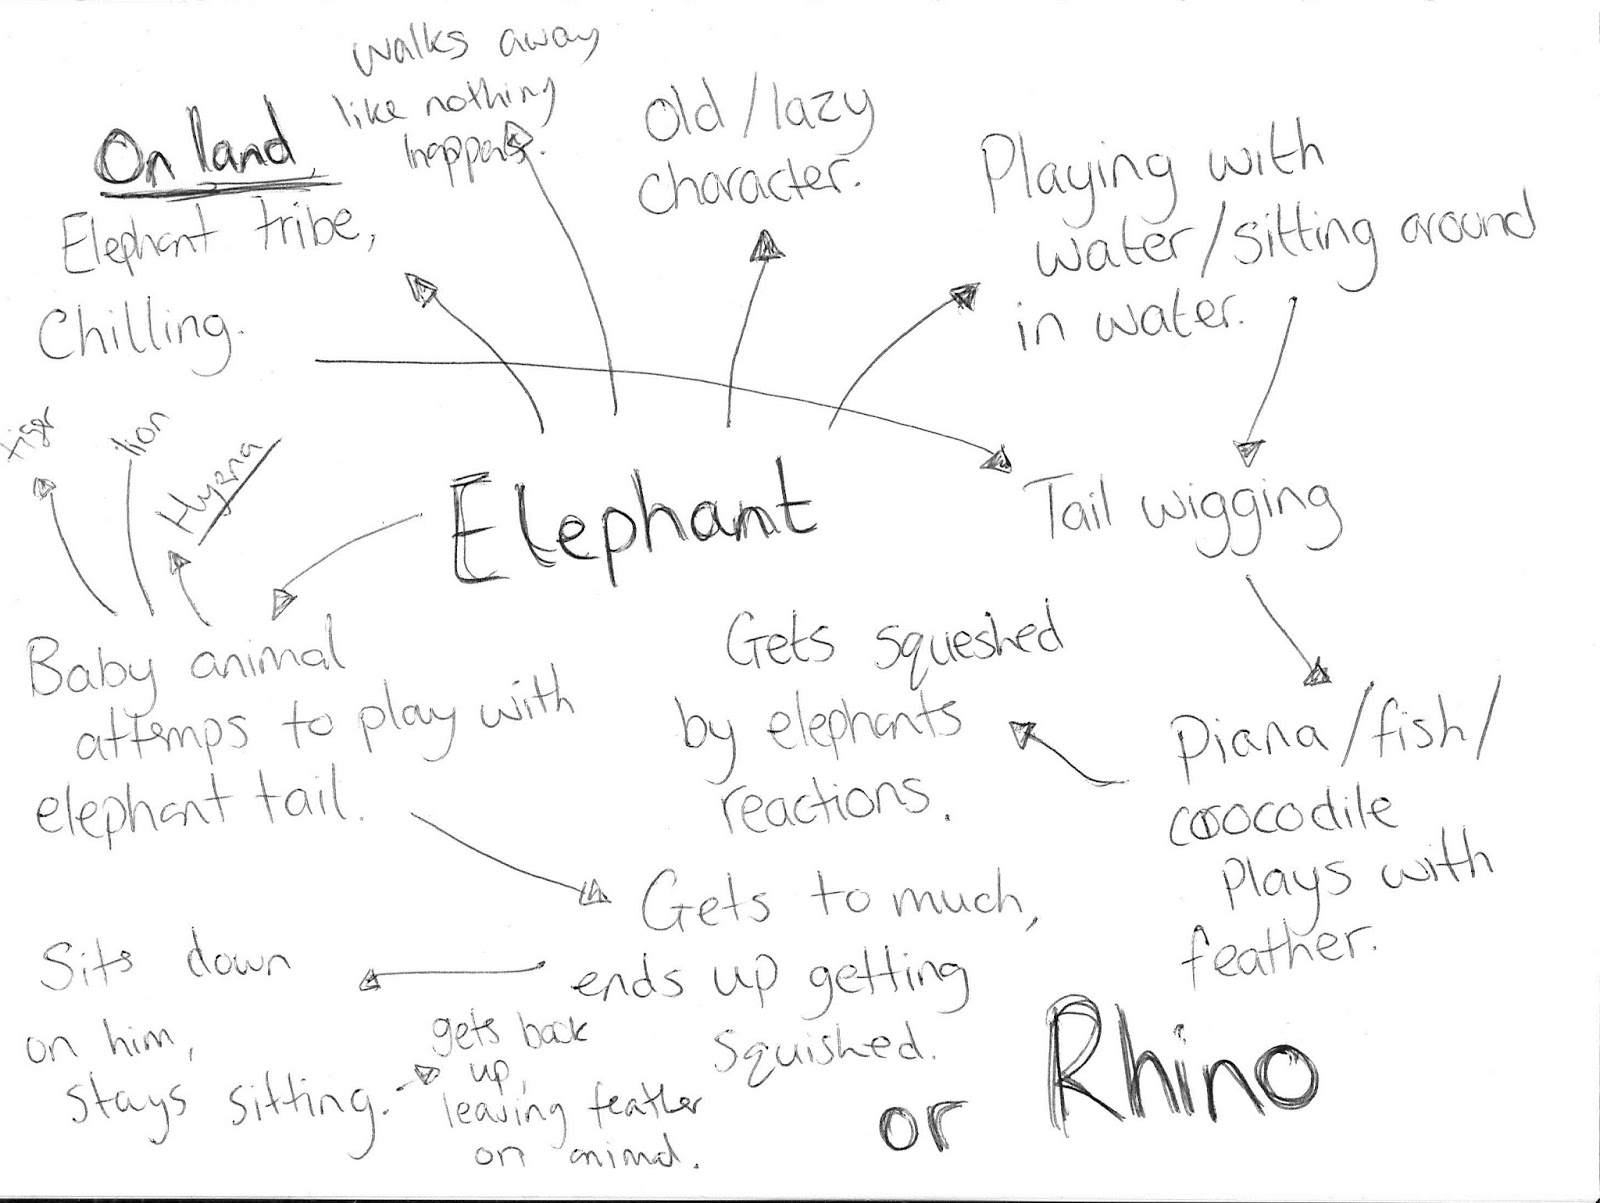 On land
Elephant tribe,
Chilling.
walks away
like nothing
happens.
Old/lazy
character.
Playing with
water/sitting around
in water.
tiger
lion
Hyena
Elephant
Tail wigging
Baby animal
attemps to play with
elephant tail.
Gets squeshed
by elephants
reactions.
Piana/fish/
crocodile
plays with
feather.
Gets to much,
ends up getting
squished.
Sits down
on him,
stays sitting.
gets back
up,
leaving feather
on animal.
or Rhino